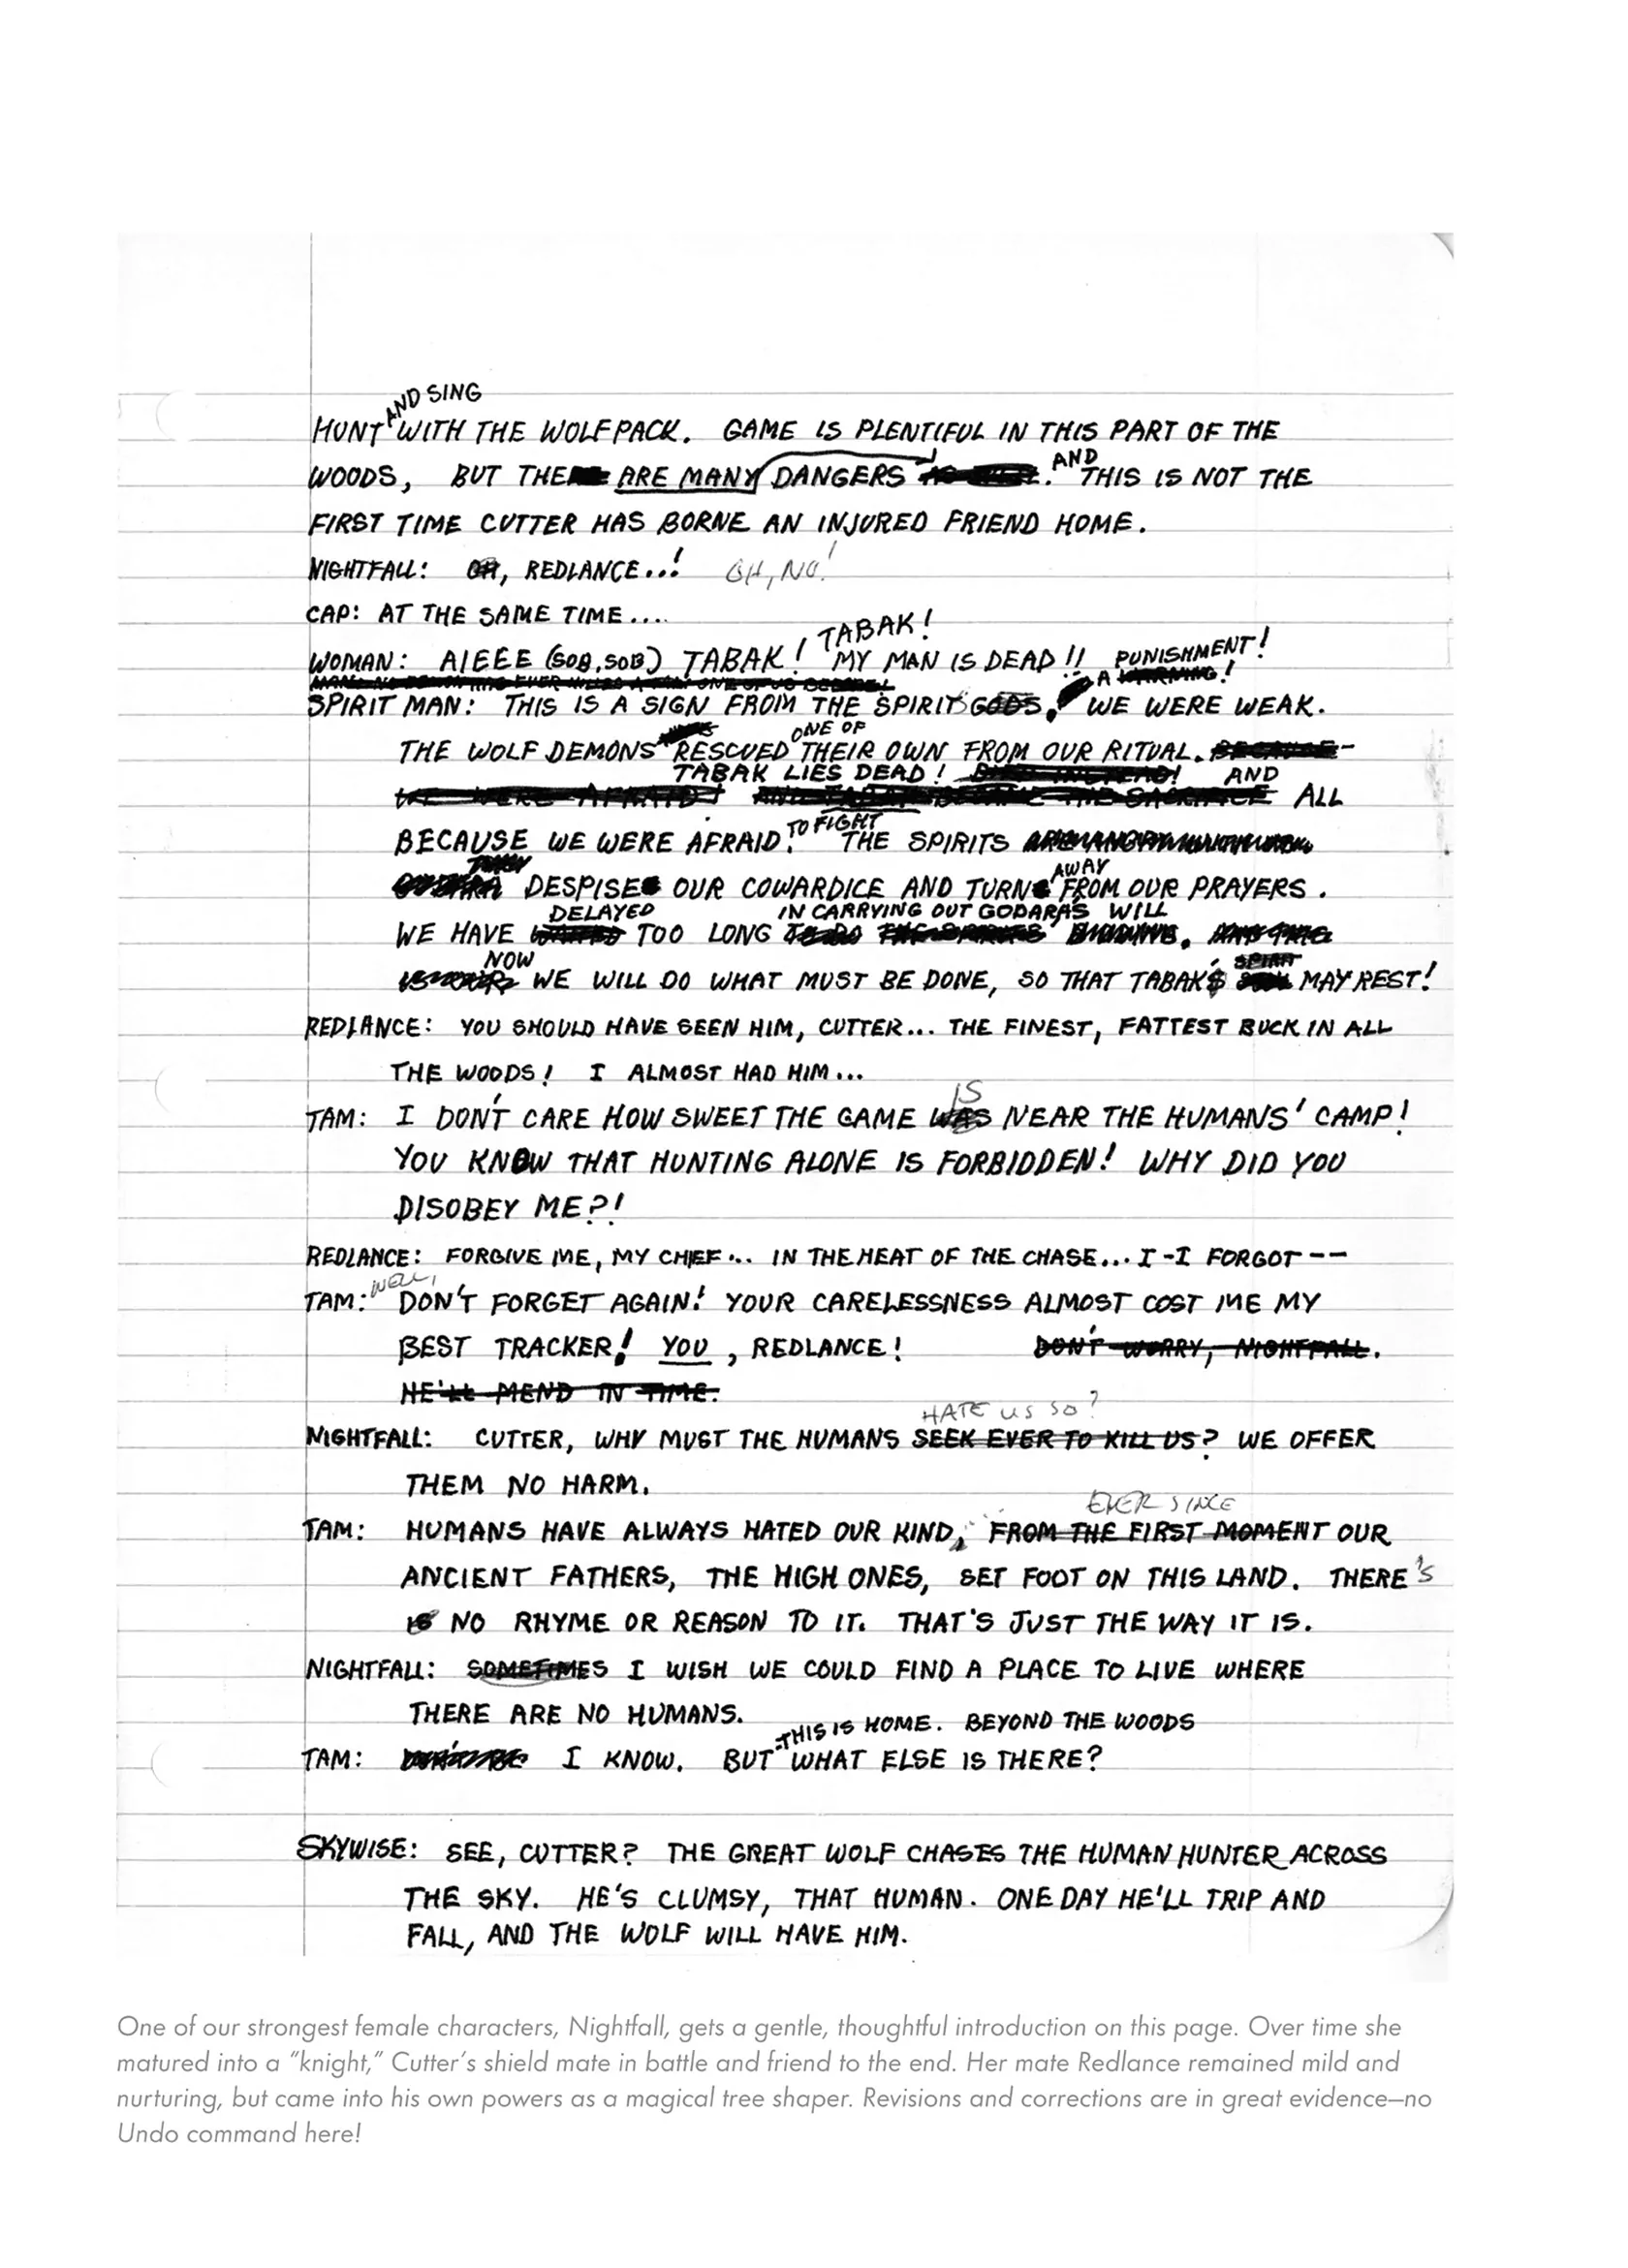 AND SING
HUNT WITH THE WOLFPACK. GAME IS PLENTIFUL IN THIS PART OF THE
AND
WOODS, BUT THE ARE MANY DANGERS . THIS IS NOT THE
FIRST TIME CUTTER HAS BORNE AN INJURED FRIEND HOME.
NIGHTFALL: OH, REDLANCE..! OH, NO!
CAP: AT THE SAME TIME....
TABAK!
WOMAN: AIEEE (SOB, SOB) TABAK! MY MAN IS DEAD!! PUNISHMENT!
A WARNING!
SPIRIT MAN: THIS IS A SIGN FROM THE SPIRITS GODS. WE WERE WEAK.
ONE OF
THE WOLF DEMONS RESCUED THEIR OWN FROM OUR RITUAL. BECAUSE
TABAK LIES DEAD! AND
WE WERE AFRAID! AND TABAK BECAME THE SACRIFICE ALL
TO FIGHT
BECAUSE WE WERE AFRAID. THE SPIRITS
AWAY
DESPISE OUR COWARDICE AND TURN FROM OUR PRAYERS.
DELAYED IN CARRYING OUT GODARA'S WILL
WE HAVE WAITED TOO LONG TO DO THE SPIRITS' BIDDING.
NOW SPIRIT
WE WILL DO WHAT MUST BE DONE, SO THAT TABAK'S MAY REST!
REDLANCE: YOU SHOULD HAVE SEEN HIM, CUTTER... THE FINEST, FATTEST BUCK IN ALL
THE WOODS! I ALMOST HAD HIM...
IS
TAM: I DON'T CARE HOW SWEET THE GAME WAS NEAR THE HUMANS' CAMP!
YOU KNOW THAT HUNTING ALONE IS FORBIDDEN! WHY DID YOU
DISOBEY ME?!
REDLANCE: FORGIVE ME, MY CHIEF... IN THE HEAT OF THE CHASE... I-I FORGOT--
WELL,
TAM: DON'T FORGET AGAIN! YOUR CARELESSNESS ALMOST COST ME MY
BEST TRACKER! YOU, REDLANCE! DON'T WORRY, NIGHTFALL.
HE'LL MEND IN TIME.
HATE US SO?
NIGHTFALL: CUTTER, WHY MUST THE HUMANS SEEK EVER TO KILL US? WE OFFER
THEM NO HARM.
EVER SINCE
TAM: HUMANS HAVE ALWAYS HATED OUR KIND, FROM THE FIRST MOMENT OUR
ANCIENT FATHERS, THE HIGH ONES, SET FOOT ON THIS LAND. THERE'S
IS NO RHYME OR REASON TO IT. THAT'S JUST THE WAY IT IS.
NIGHTFALL: SOMETIMES I WISH WE COULD FIND A PLACE TO LIVE WHERE
THERE ARE NO HUMANS.
THIS IS HOME. BEYOND THE WOODS
TAM: I KNOW. BUT WHAT ELSE IS THERE?
SKYWISE: SEE, CUTTER? THE GREAT WOLF CHASES THE HUMAN HUNTER ACROSS
THE SKY. HE'S CLUMSY, THAT HUMAN. ONE DAY HE'LL TRIP AND
FALL, AND THE WOLF WILL HAVE HIM.
One of our strongest female characters, Nightfall, gets a gentle, thoughtful introduction on this page. Over time she
matured into a "knight," Cutter's shield mate in battle and friend to the end. Her mate Redlance remained mild and
nurturing, but came into his own powers as a magical tree shaper. Revisions and corrections are in great evidence—no
Undo command here!